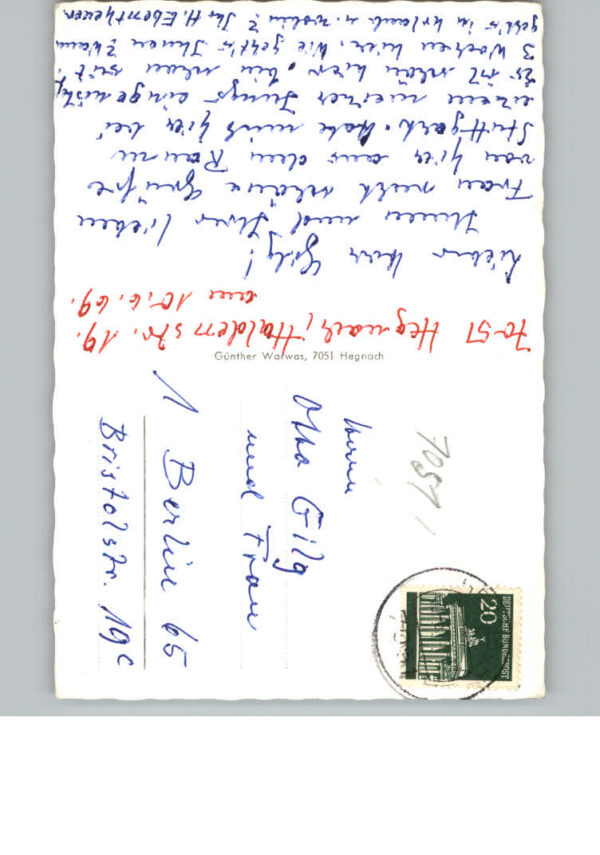 7051 Hegnach, Haldenstr. 19.
am 10.6.69.
Lieber Herr Gilg!
Ihnen und Ihrer lieben
Frau recht schöne Grüße
von hier aus dem Raum
Stuttgart. Habe mich hier bei
einem meiner Jungs eingenistet,
Es ist schön hier, bin schon seit
3 Wochen hier. Wie geht's Ihnen? Wann
geht's in Urlaub u. wohin? Ihr H.
Günther Warwas, 7051 Hegnach
7051
Herrn
Otto Gilg
und Frau
1 Berlin 65
Bristolstr. 19c
20
DEUTSCHE BUNDESPOST